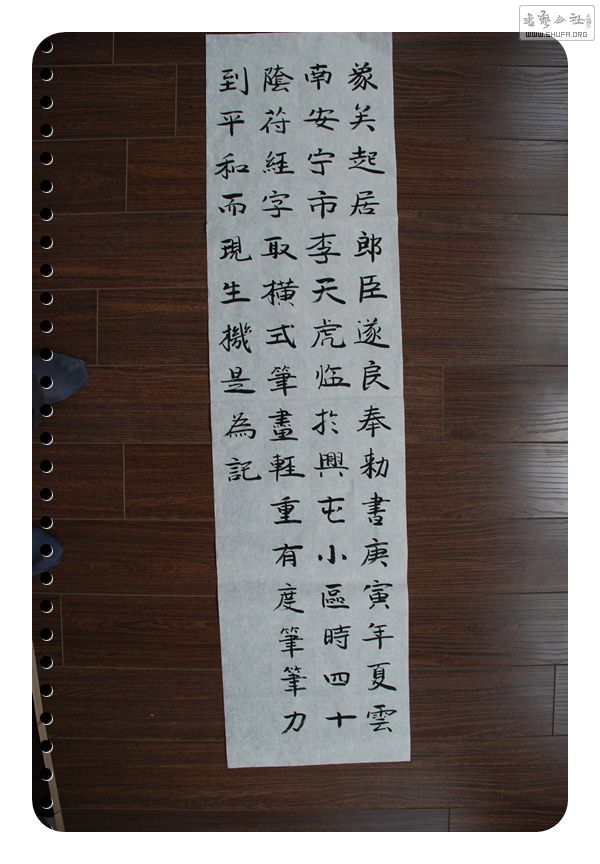 象矣起居郎臣遂良奉勅書庚寅年夏雲
南安宁市李天虎临於興屯小區時四十
陰符經字取橫式筆畫輕重有度筆筆力
到平和而現生機是為記
書藝公社
WWW.SHUFA.ORG